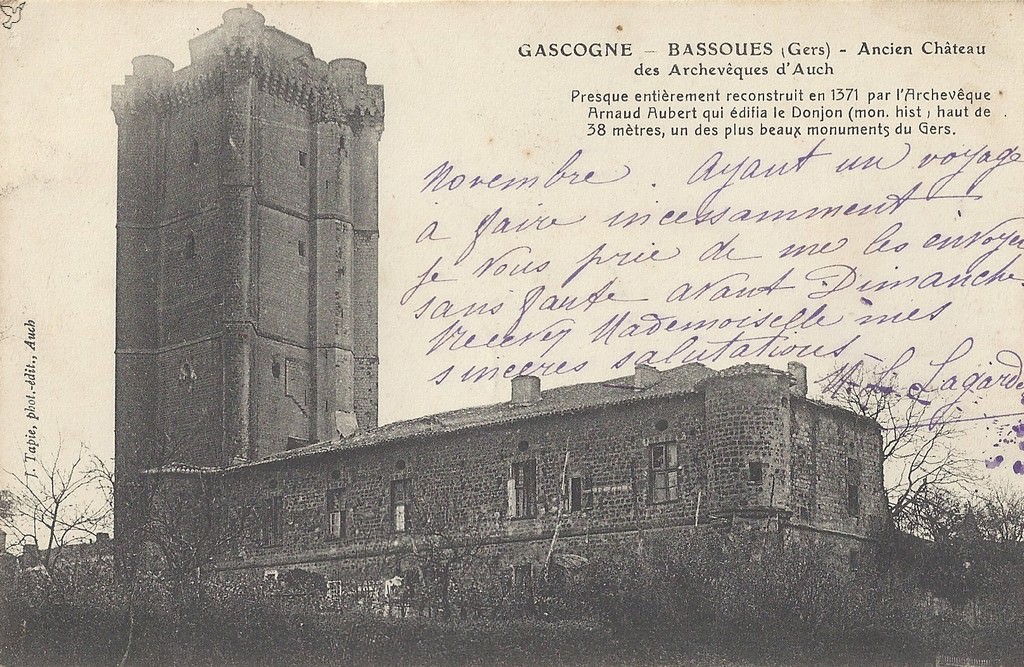 GASCOGNE – BASSOUES (Gers) - Ancien Château
des Archevêques d'Auch
Presque entièrement reconstruit en 1371 par l'Archevêque
Arnaud Aubert qui édifia le Donjon (mon. hist ; haut de
38 mètres, un des plus beaux monuments du Gers.
Novembre. Ayant un voyage
à faire incessamment
je vous prie de me les envoyer
sans faute avant Dimanche.
Recevez Mademoiselle mes
sincères salutations
M. L. Lagarde
J. Tapie, phot.-édit., Auch